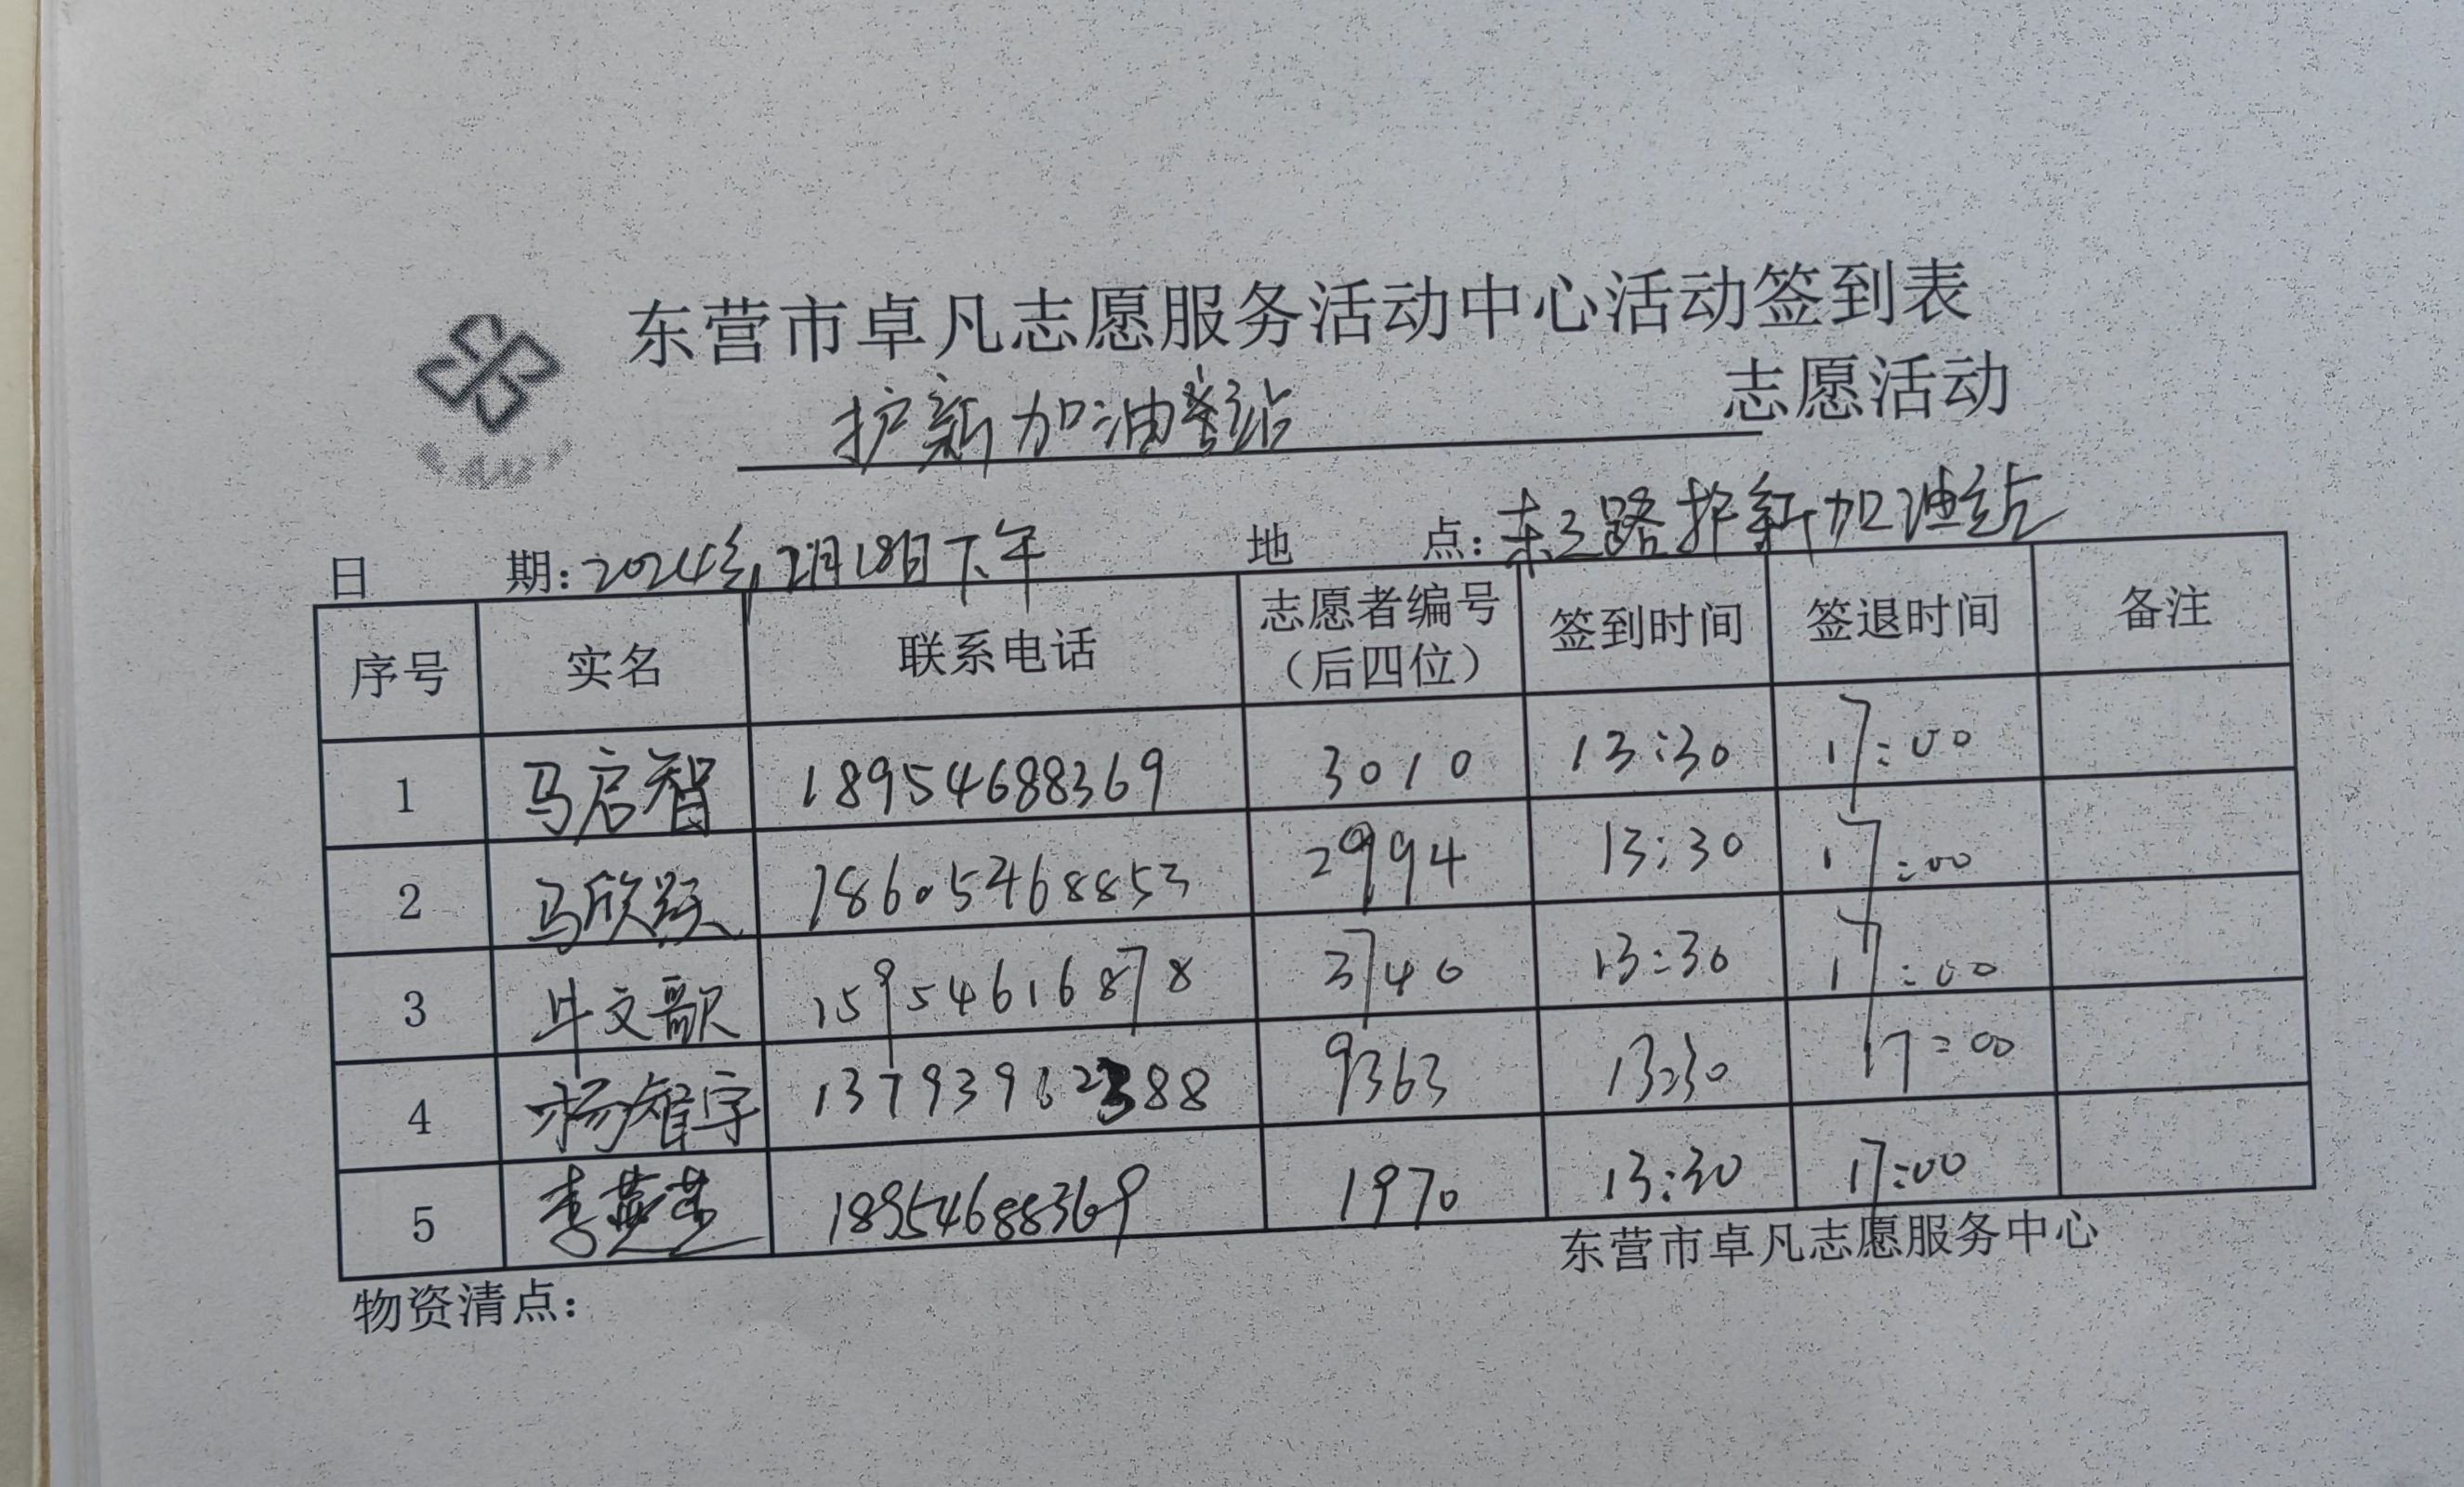 东营市卓凡志愿服务活动中心活动签到表
护新加油站 志愿活动
日 期：2024年2月18日下午 地 点：东三路护新加油站
序号 实名 联系电话 志愿者编号（后四位） 签到时间 签退时间 备注
1 马启智 18954688369 3010 13:30 17:00
2 马欣跃 18605468853 2994 13:30 17:00
3 牛文歌 15954616878 3740 13:30 17:00
4 杨智宇 13793962388 9363 13:30 17:00
5 李燕燕 18954688369 1970 13:30 17:00
东营市卓凡志愿服务中心
物资清点：